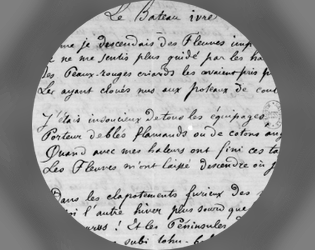 Le Bateau ivre
me je descendais des Fleuves imp
ne me sentis plus guidé par les ha
Des Peaux-rouges criards les avaient pris p
Les ayant cloués nus aux poteaux de coul
J'étais insoucieux de tous les équipages,
Porteur de blés flamands ou de cotons ang
Quand avec mes haleurs ont fini ces ta
Les Fleuves m'ont laissé descendre où j
Dans les clapotements furieux des
l'autre hiver plus sourd que
Et les Péninsules
subi tohu-